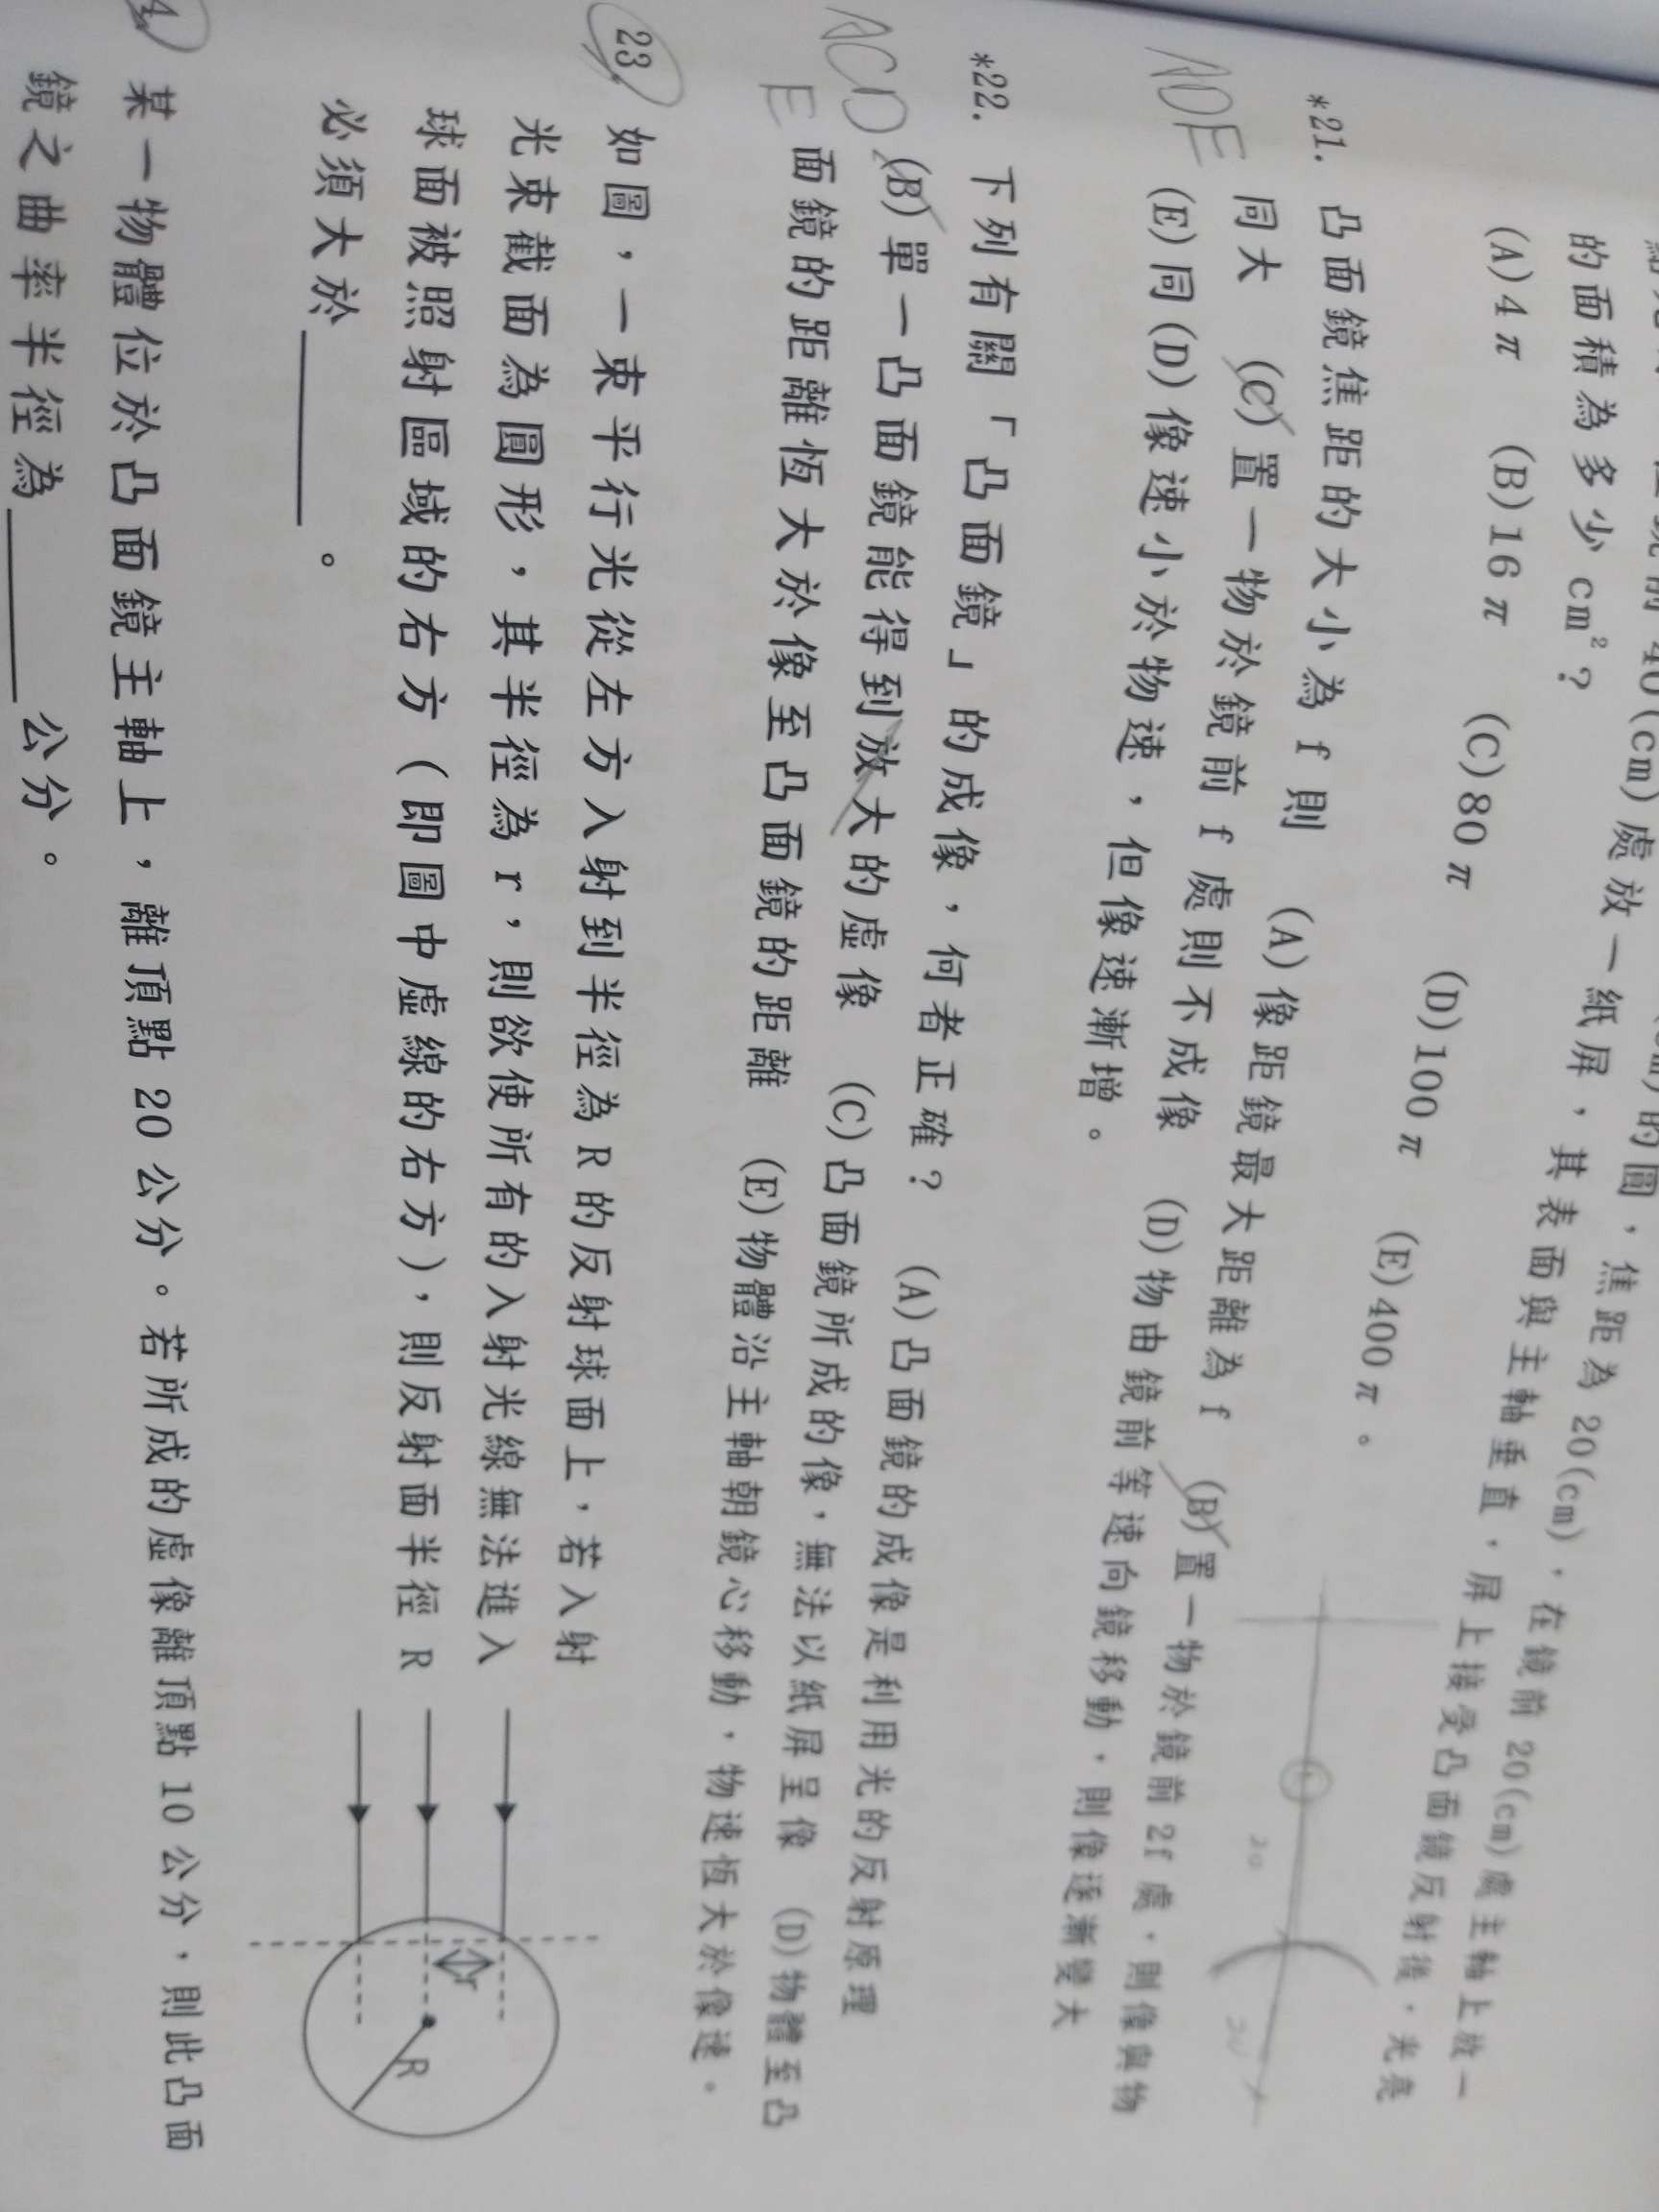 40(cm)處放一紙屏,其表面與主軸垂直,屏上接受凸面鏡反射後,光亮
的面積為多少 cm²?
(A)4π (B)16π (C)80π (D)100π (E)400π。
ADE
*21. 凸面鏡焦距的大小為 f 則 (A)像距鏡最大距離為 f (B)置一物於鏡前 2f 處,則像與物
同大 (C)置一物於鏡前 f 處則不成像 (D)物由鏡前等速向鏡移動,則像逐漸變大
(E)同(D)像速小於物速,但像速漸增。
20
ACD
E
*22. 下列有關「凸面鏡」的成像,何者正確? (A)凸面鏡的成像是利用光的反射原理
(B)單一凸面鏡能得到放大的虛像 (C)凸面鏡所成的像,無法以紙屏呈像 (D)物體至凸
面鏡的距離恆大於像至凸面鏡的距離 (E)物體沿主軸朝鏡心移動,物速恆大於像速。
23. 如圖,一束平行光從左方入射到半徑為 R 的反射球面上,若入射
光束截面為圓形,其半徑為 r,則欲使所有的入射光線無法進入
球面被照射區域的右方(即圖中虛線的右方),則反射面半徑 R
必須大於______。
r
R
某一物體位於凸面鏡主軸上,離頂點 20 公分。若所成的虛像離頂點 10 公分,則此凸面
鏡之曲率半徑為______公分。